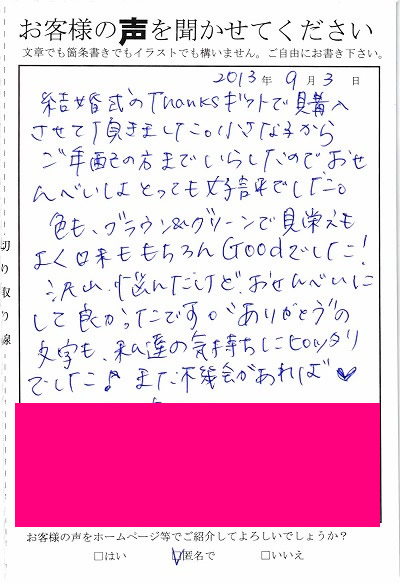 お客様の声を聞かせてください
文章でも箇条書きでもイラストでも構いません。ご自由にお書き下さい。
2013年 9月 3日
結婚式のThanksギフトで購入
させて頂きました。小さな子から
ご年配の方までいらしたのでおせ
んべいはとっても好評でした。
色も、ブラウン&グリーンで見栄えも
よく味ももちろんGoodでした!
沢山、悩んだけど、おせんべいに
して良かったです。"ありがとう"の
文字も、私達の気持ちにピッタリ
でした♪ また機会があれば♥
切り取り線
お客様の声をホームページ等でご紹介してよろしいでしょうか?
□はい ☑匿名で □いいえ